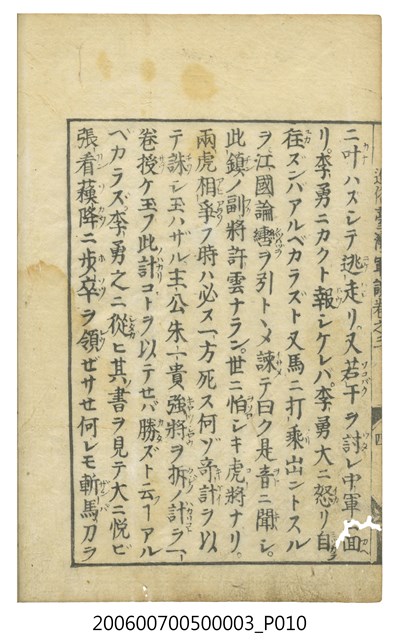 ニ叶ハズシテ逃走リ。又若干ヲ討レ中軍ニ面
リ。李勇ニカクト報シケレバ。李勇大ニ怒リ自
往ズンバアルベカラズト又馬ニ打乗出ントスル
ヲ。江國論轡ヲ引トヽメ諫テ曰ク是音ニ聞シ。
此鎮ノ副將許雲ナラン。世ニ怕シキ虎將ナリ。
兩虎相爭フ時ハ必ス一方死ス何ゾ奇計ヲ以
テ誅シ玉ハザル。主公朱一貴強將ヲ拆ノ計ヲ一
卷授ケ玉フ此計コトヲ以テせバ勝ズト云ヿアル
ベカラズ。李勇之ニ從ヒ其書ヲ見テ大ニ悦ビ
張看蘓降ニ歩卒ヲ領ぜサせ何レモ斬馬刀ヲ
臺灣軍談卷之二
四
200600700500003_P010